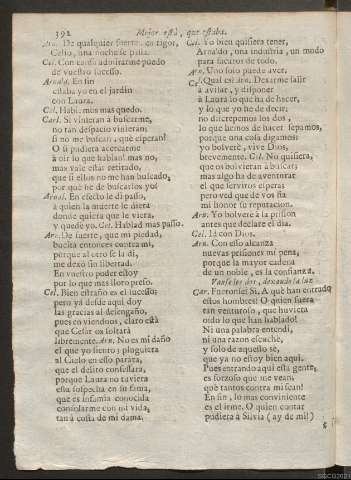 392
Mejor está, que estaba.
Arn. De qualquier suerte, en rigor,
Celio, una noche se passa.
Cel. Con causa admirarme puedo
de vuestro sucesso.
Arnald. En fin
estaba yo en el jardin
con Laura.
C. Habl. mas mas quedo.
Carl. Si vinieran à buscarme,
no tan despacio vinieran;
si no me buscan, què esperan?
O si pudiera acercarme
à oir lo que hablan! mas no,
mas vale estàr retirado,
que si ellos no me han buscado,
por què he de buscarlos yo?
Arnal. En efecto le dì passo,
à quien la muerte le diera
donde quiera que le viera,
y quedè yo. Cel. Hablad mas passo.
Arn. De suerte, que mi piedad,
bucita entonces contra mi,
porque al otro se la dì,
me dexò sin libertad.
En vuestro poder estoy
por lo que mas lloro preso.
Cel. Bien estraño es el sucesso;
pero yà desde aqui doy
las gracias al desengaño,
pues en viendoos, claro està
que Cesar os soltarà
libremente. Arn. No es mi daño
el que yo siento; pluguiera
al Cielo en esso parára,
que el delito confessára,
porque Laura no tuviera
essa sospecha en su fama,
que es infamia conocida
consolarme con mi vida,
tan à costa de mi dama.
Cel. Yo bien quisiera tener,
Arnaldo, una industria, un modo
para sacaros de todo.
Arn. Uno solo puede aver.
C. Qual es? Arn. Dexarme salir
à avisar, y disponer
à Laura lo que ha de hacer,
y lo que yo he de decir;
no discrepemos los dos,
lo que hemos de hacer sepamos,
porque una cosa digamos:
yo bolverè, vive Dios,
brevemente. Cel. No quisiera,
que os bolvieran à buscar;
mas algo he de aventurar
el que serviros espera;
pero ved que de vos fia
mi honor su reputacion.
Arn. Yo bolverè à la prision
antes que declare el dia.
Cel. Id con Dios.
Arn. Con esso alcanza
nuevas prisiones mi pena,
porque la mayor cadena
de un noble, es la confianza.
Vanse los dos, dexando la luz
Car. Fueronse? Si. A què han entrado
estos hombres? O quien fuera
tan venturoso, que huviera
oido lo que han hablado!
Ni una palabra entendì,
ni una razon escuchè,
y solo de aquesso sè,
que ya no estoy bien aqui.
Pues entrando aqui esta gente,
es forzoso que me vean,
què tantos contra mi sean!
En fin, lo mas conveniente
es el irme. O quien contar
pudiera à Silvia (ay de mi!)